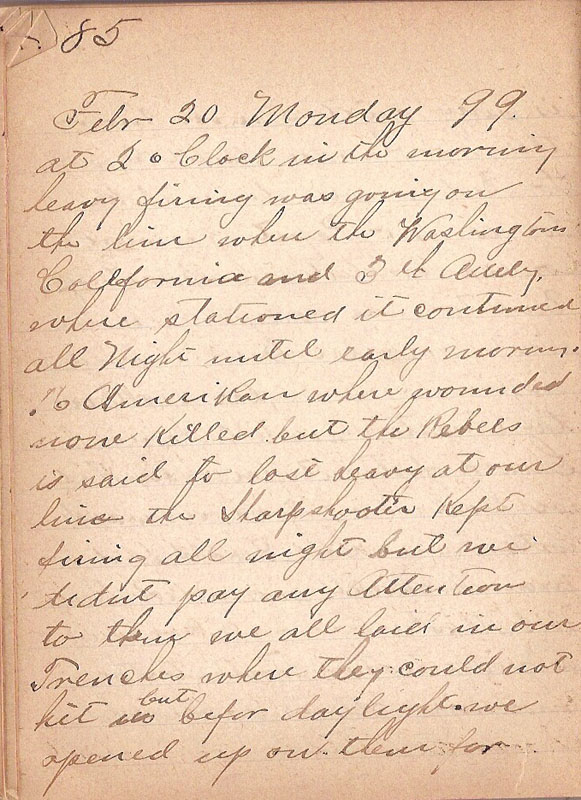 85
Febr 20 Monday 99.
at 2 o Clock in the morning
heavy firing was going on
the line where the Washingtons
California and 3 th Artily,
where stationed it continued
all Night until early morning.
16 Amerikan where wounded
none Killed but the Rebels
is said to lost heavy at our
line the Sharpshooter Kept
firing all night but we
didnt pay any Attention
to them we all laid in our
Trenches where they could not
hit us but befor daylight we
opened up on them for